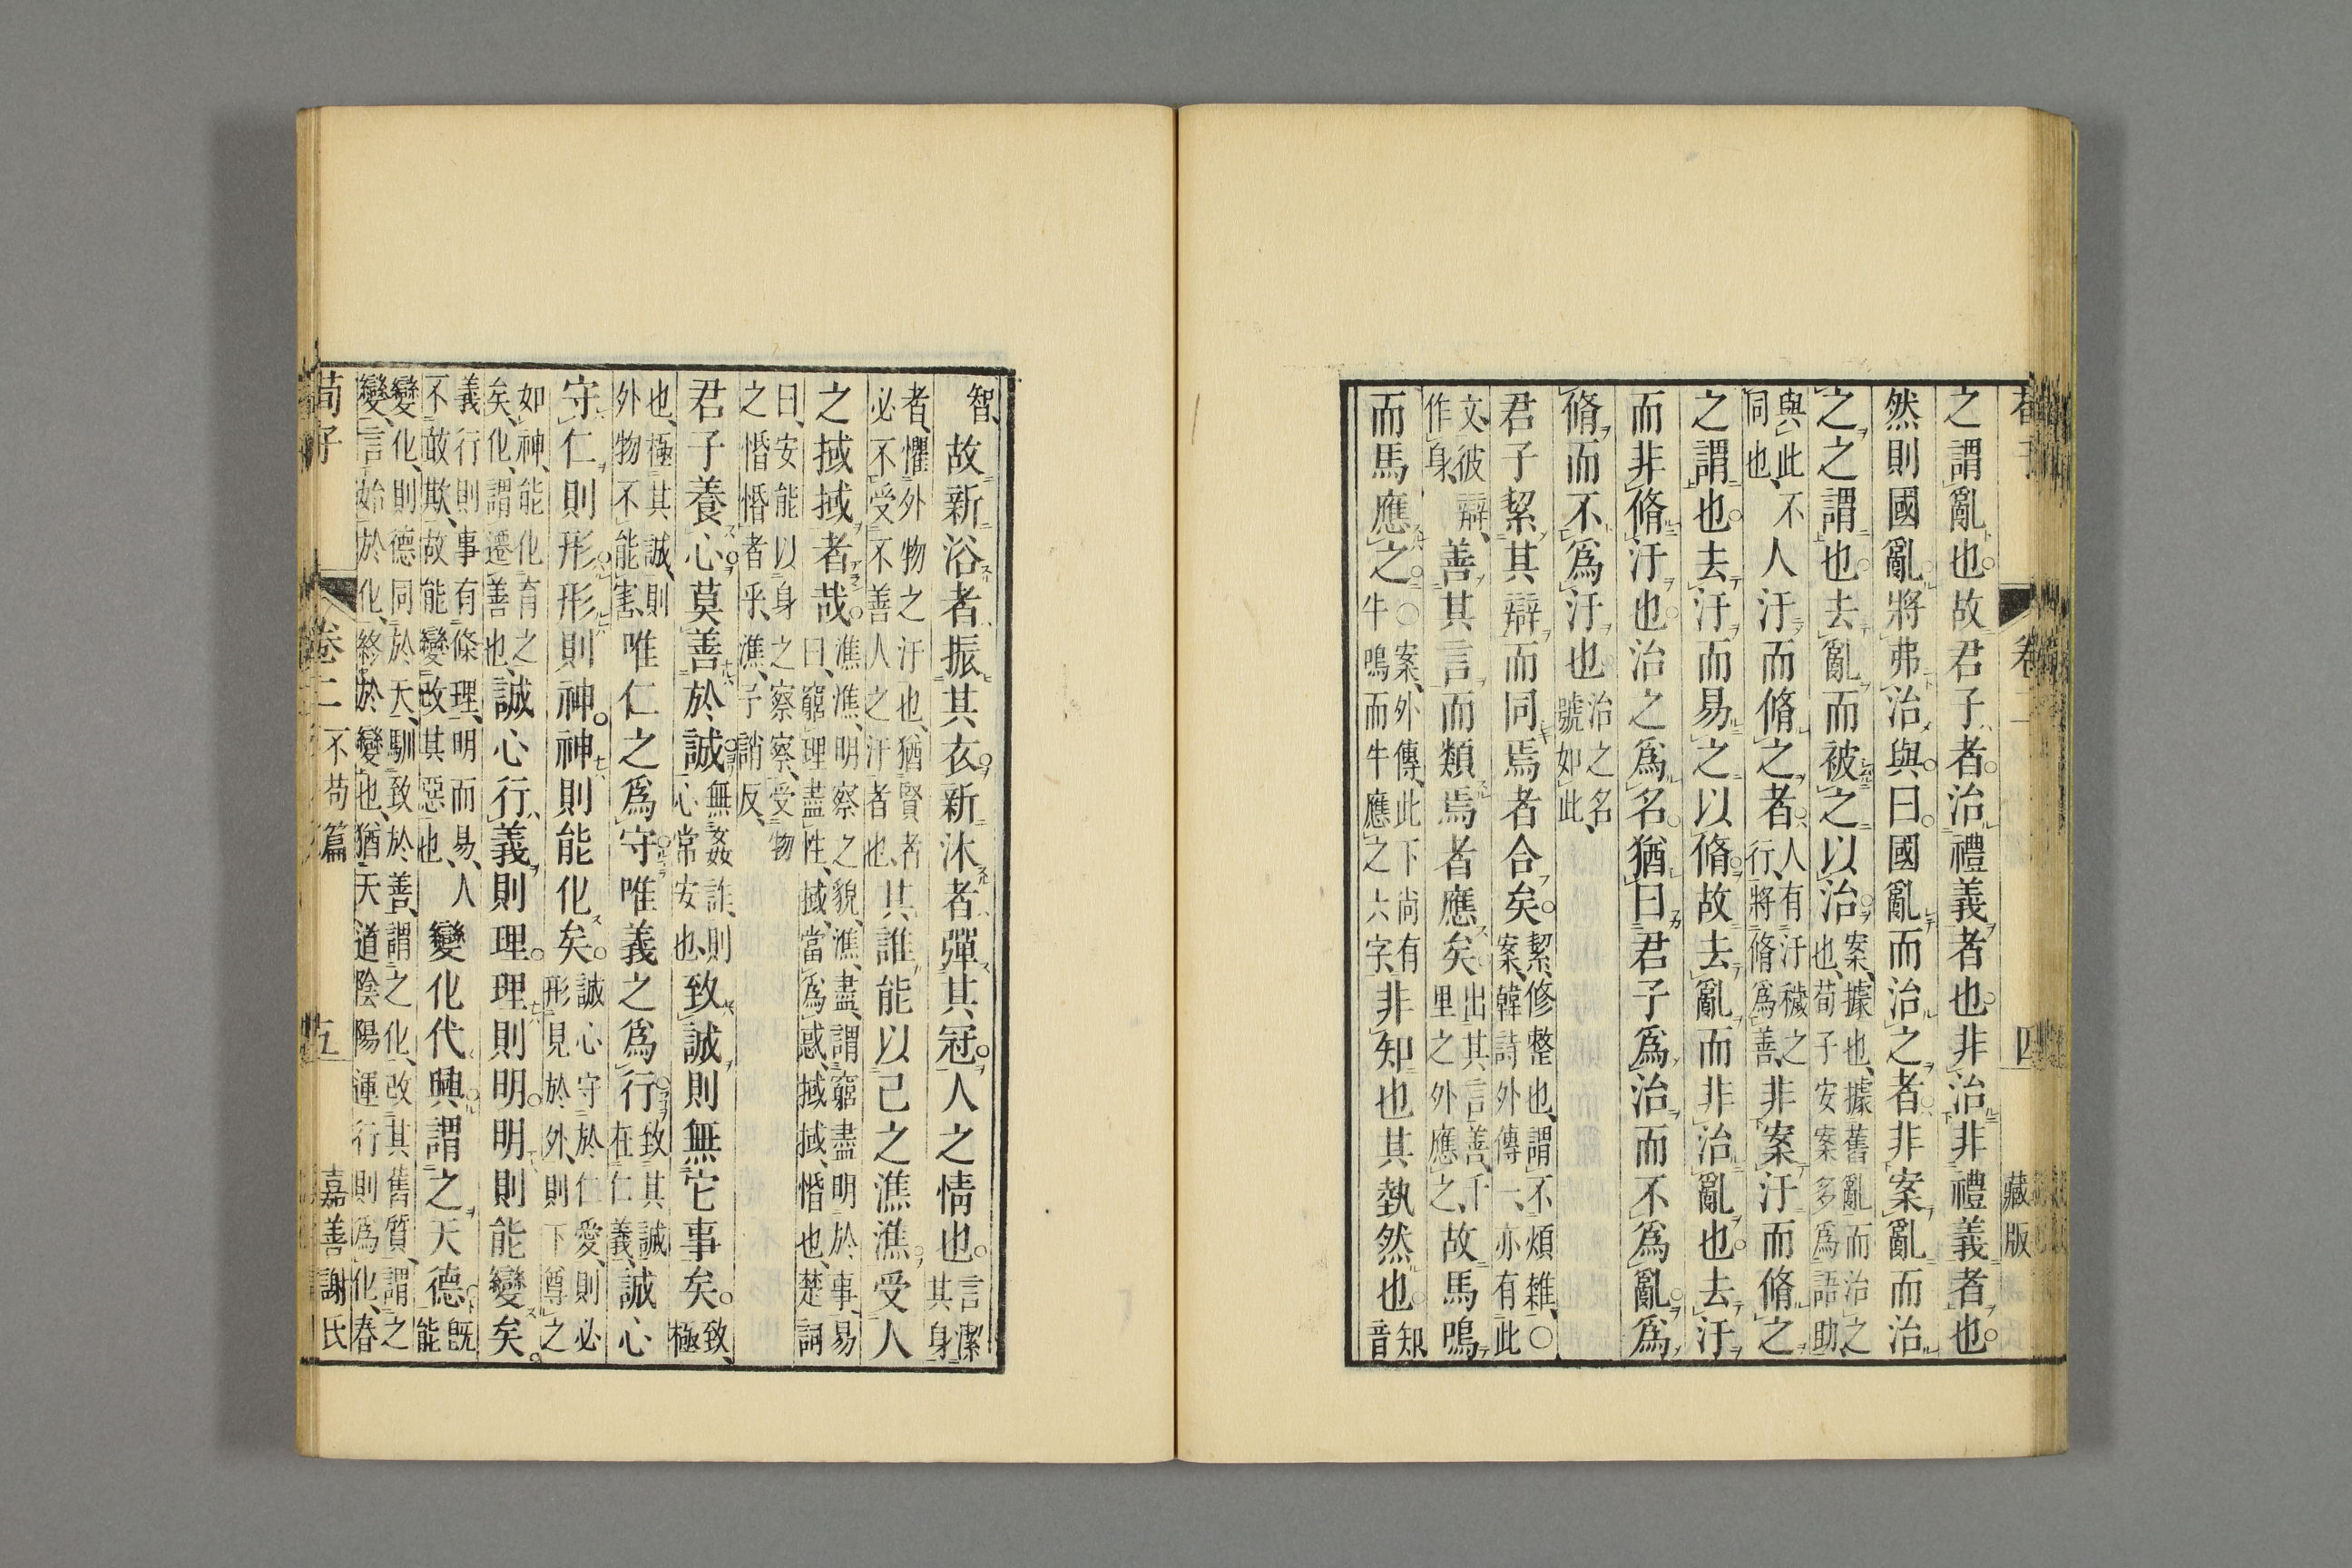 卷 四 藏版
之謂亂也。故君子者。治禮義者也。非治非禮義者也。
然則國亂將弗治與。曰。國亂而治之者。非案亂而治
之之謂也。去亂而被之以治。案、據也、據舊亂而治之也、荀子安案多爲語助、
與此不同也、人汙而脩之者。人有汙穢之行、將脩爲善、非案汙而脩之
之謂也。去汙而易之以脩。故去亂而非治亂也。去汙
而非脩汙也。治之爲名。猶曰君子爲治而不爲亂。爲
脩而不爲汙也治之名、號如此、
君子絜其辯而同焉者合矣。絜、修整也、謂不煩雜、〇案、韓詩外傳一、亦有此
文、彼辯、作身、善其言而類焉者應矣出其言善、千里之外應之、故馬鳴
而馬應之。〇案、外傳、此下尚有牛鳴而牛應之六字、非知也其埶然也。知音
智、故新浴者振其衣。新沐者彈其冠。人之情也。言潔其身
者、懼外物之汙也、猶賢者必不受不善人之汙者也、其誰能以己之潐潐受人
之掝掝者哉。潐潐、明察之貌、潐、盡、謂窮盡明於事、易曰、窮理盡性、掝、當爲惑、掝掝、惛也、楚詞
曰、安能以身之察察、受物之惛惛者乎、潐、子誚反、
君子養心莫善於誠。無姦詐、則心常安也、致誠則無它事矣。致、極
也、極其誠、則外物不能害、唯仁之爲守。唯義之爲行。致其誠、在仁義、誠心
守仁則形。形則神。神則能化矣。誠心守於仁愛、則必形見於外、則下尊之
如神、能化育之矣、化、謂遷善也、誠心行義則理。理則明。明則能變矣。
義行則事有條理、明而易、人不敢欺、故能變改其惡也、變化代興謂之天德。既能
變化、則德同於天、馴致於善、謂之化、改其舊質、謂之變、言始於化、終於變也、猶天道陰陽運行則爲化、春
荀子 卷二 不苟篇 五 嘉善謝氏